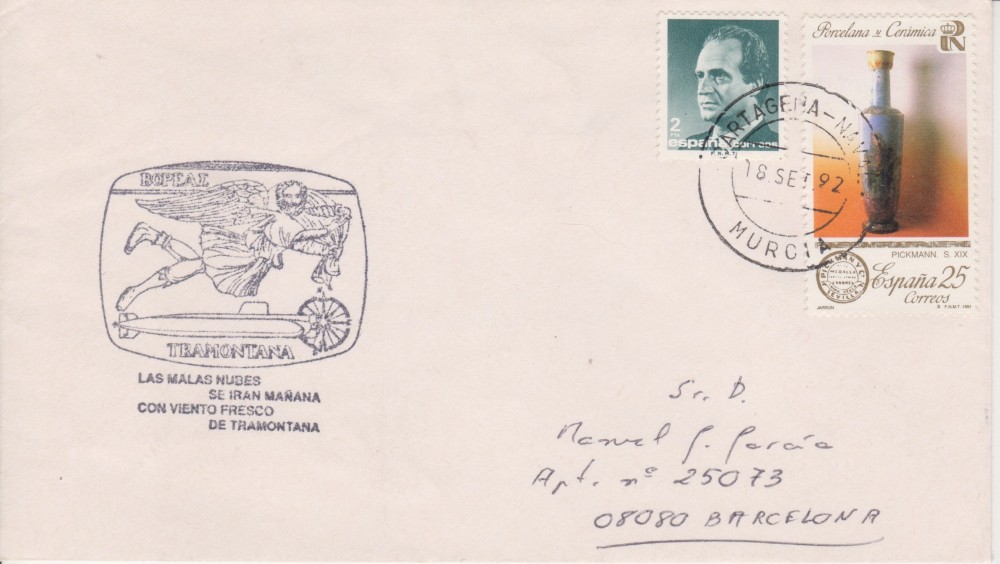 2 PTA
españa correos
F.N.M.T.
Porcelana y Cerámica
PICKMANN. S. XIX
PICKMAN Y Cª
MEDALLA
SEVILLA
España 25
Correos
JARRON © F.N.M.T. 1991
CARTAGENA-NAVAL
18.SET.92
MURCIA
ΒΟΡΕΑΣ
TRAMONTANA
LAS MALAS NUBES
SE IRAN MAÑANA
CON VIENTO FRESCO
DE TRAMONTANA
Sr. D.
Manuel G. García
Apt. nº 25073
08080 BARCELONA